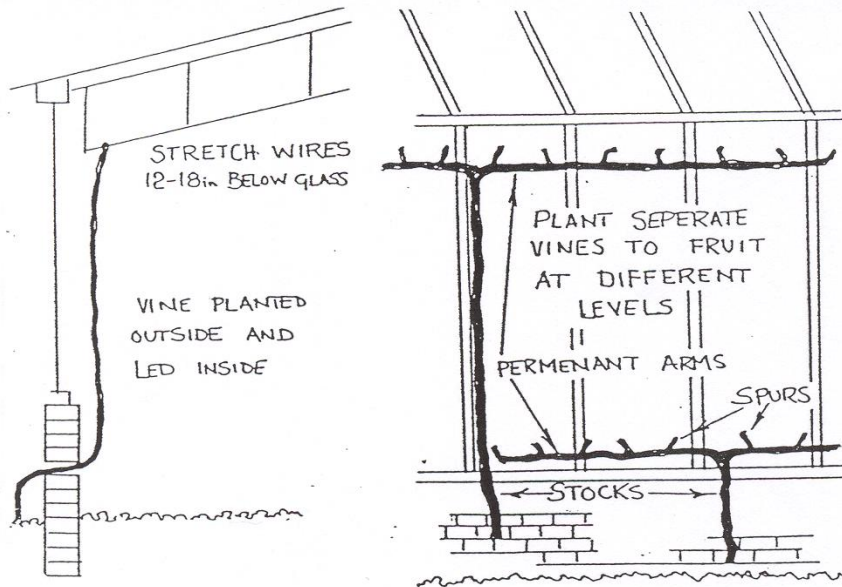 STRETCH WIRES
12-18in BELOW GLASS
VINE PLANTED
OUTSIDE AND
LED INSIDE
PLANT SEPERATE
VINES TO FRUIT
AT DIFFERENT
LEVELS
PERMENANT ARMS
SPURS
STOCKS